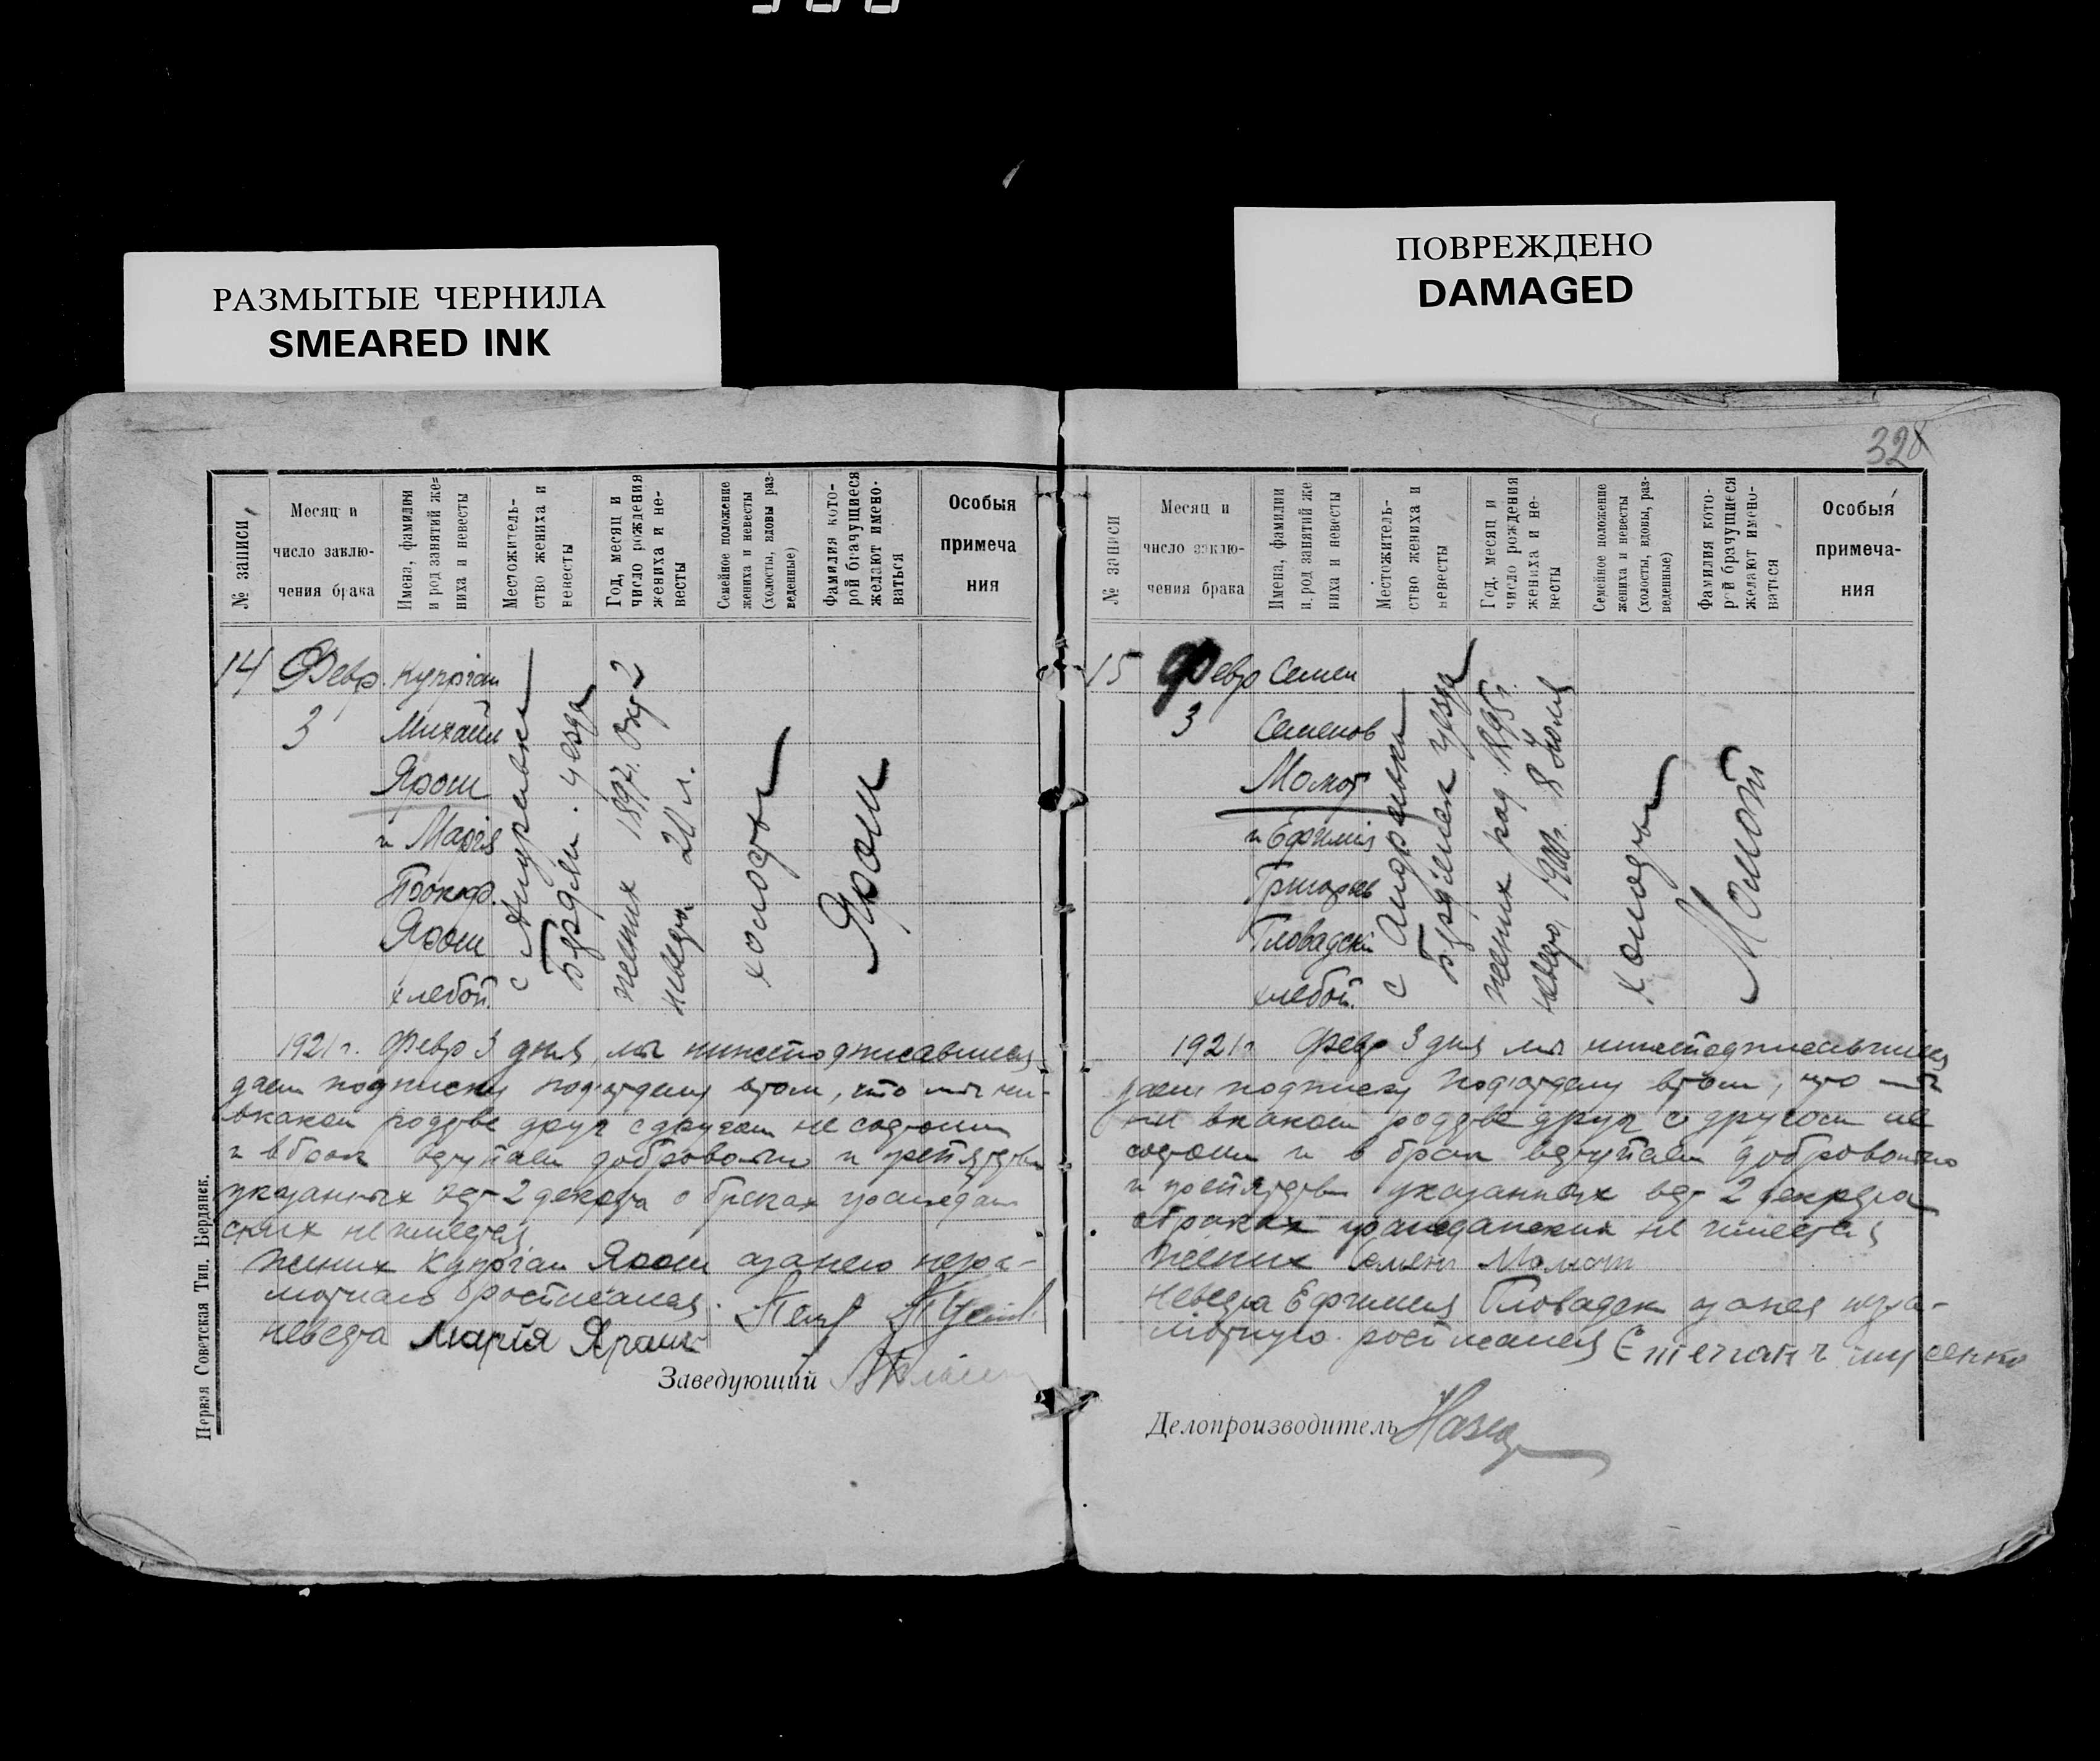 РАЗМЫТЫЕ ЧЕРНИЛА
SMEARED INK
ПОВРЕЖДЕНО
DAMAGED
№ записи
Месяц и
число заклю-
чения брака
Имена, фамилии
и род занятий же-
ниха и невесты
Местожитель-
ство жениха и
невесты
Год, месяц и
число рождения
жениха и не-
весты
Семейное положение
жениха и невесты
(холосты, вдовы раз-
веденные)
Фамилия кото-
рой брачущиеся
желают имено-
ваться
Особыя
примеча
ния
14
Февр.
3
Купріан
Михайл
Ярош
и Марія
Прокоф.
Ярош
хлебоп.
с Андреевки
Бердян. уезда
жених 1897г. Окт 2
невеста 20 л.
холосты
Ярош
1921 г. Февр 3 дня, мы нижеподписавшиеся
даем подписку подотделу втом, что мы ни-
вкаком родстве друг с другом не состоим
и в брак вступаем добровольно и препятствий
указанных вст 2 декрета о браках граждан
ских не имеется
жених Купріан Ярош
невеста Марія Ярош
Заведующий
Первая Советская Тип. Бердянск.
328
№ записи
Месяц и
число заклю-
чения брака
Имена, фамилии
и род занятий же
ниха и невесты
Местожитель-
ство жениха и
невесты
Год, месяц и
число рождения
жениха и не-
весты
Семейное положение
жениха и невесты
(холосты, вдовы, раз-
веденные)
Фамилия кото-
рой брачущиеся
желают имено-
ваться
Особыя
примеча-
ния
15
Февр
3
Семен
Семенов
Момот
и Ефимія
Григорьев
хлебоп.
с Андреевка
Бердянск уезда
жених род. 1895 г.
невеста 1900г. 8 Июля
холосты
Момот
1921 г Февр 3 дня мы нижеподписавшиеся
даем подписку подотделу втом, что мы
ни вкаком родстве друг с другом не
состоим и в брак вступаем добровольно
и препятствий указанных вст 2 декрета
о браках гражданских не имеется
жених Семен Момот
невеста Ефимия
Делопроизводитель